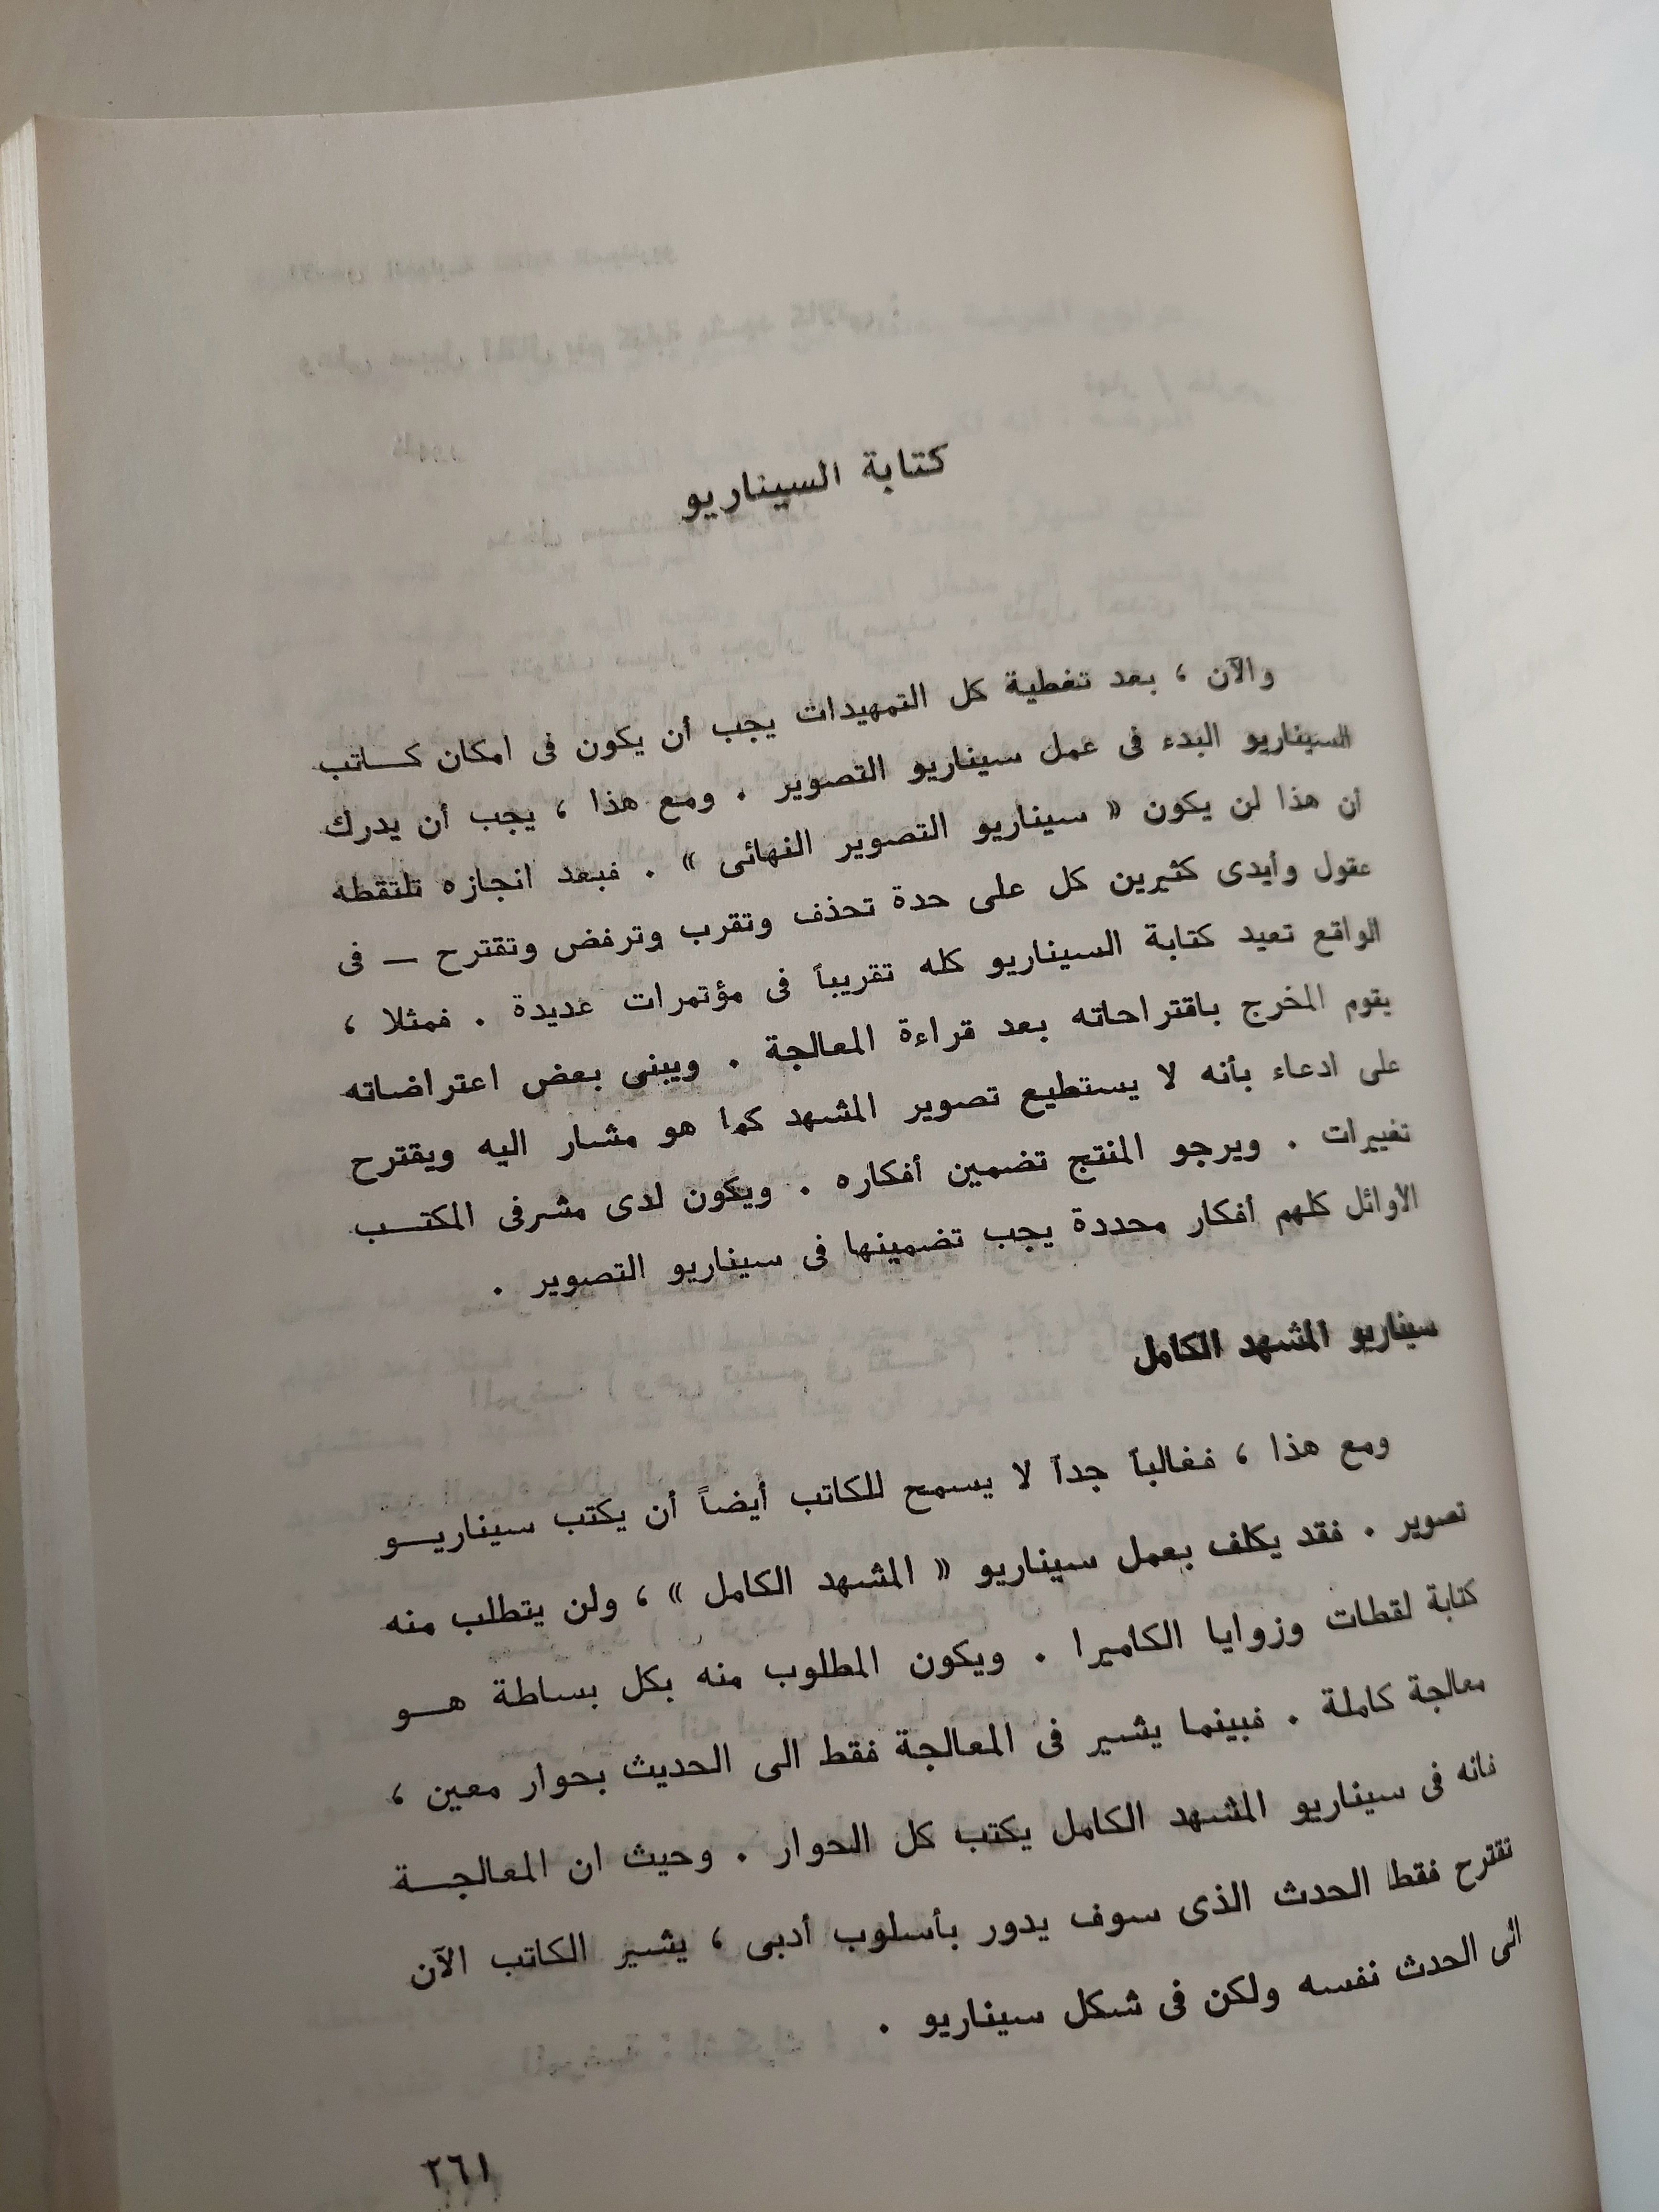 كتابة السيناريو
والآن ، بعد تغطية كل التمهيدات يجب أن يكون فى امكان كـــاتب
السيناريو البدء فى عمل سيناريو التصوير . ومع هذا ، يجب أن يدرك
أن هذا لن يكون « سيناريو التصوير النهائى » . فبعد انجازه تلتقطه
عقول وأيدى كثيرين كل على حدة تحذف وتقرب وترفض وتقترح — فى
الواقع تعيد كتابة السيناريو كله تقريباً فى مؤتمرات عديدة . فمثلا ،
يقوم المخرج باقتراحاته بعد قراءة المعالجة . ويبنى بعض اعتراضاته
على ادعاء بأنه لا يستطيع تصوير المشهد كما هو مشار اليه ويقترح
تغييرات . ويرجو المنتج تضمين أفكاره . ويكون لدى مشرفى المكتـــب
الأوائل كلهم أفكار محددة يجب تضمينها فى سيناريو التصوير .
سيناريو المشهد الكامل
ومع هذا ، فغالباً جداً لا يسمح للكاتب أيضاً أن يكتب سيناريـــو
تصوير . فقد يكلف بعمل سيناريو « المشهد الكامل » ، ولن يتطلب منه
كتابة لقطات وزوايا الكاميرا . ويكون المطلوب منه بكل بساطة هـــو
معالجة كاملة . فبينما يشير فى المعالجة فقط الى الحديث بحوار معين ،
فانه فى سيناريو المشهد الكامل يكتب كل الحوار . وحيث ان المعالجـــة
تقترح فقط الحدث الذى سوف يدور بأسلوب أدبى ، يشير الكاتب الآن
الى الحدث نفسه ولكن فى شكل سيناريو .
٢٦١